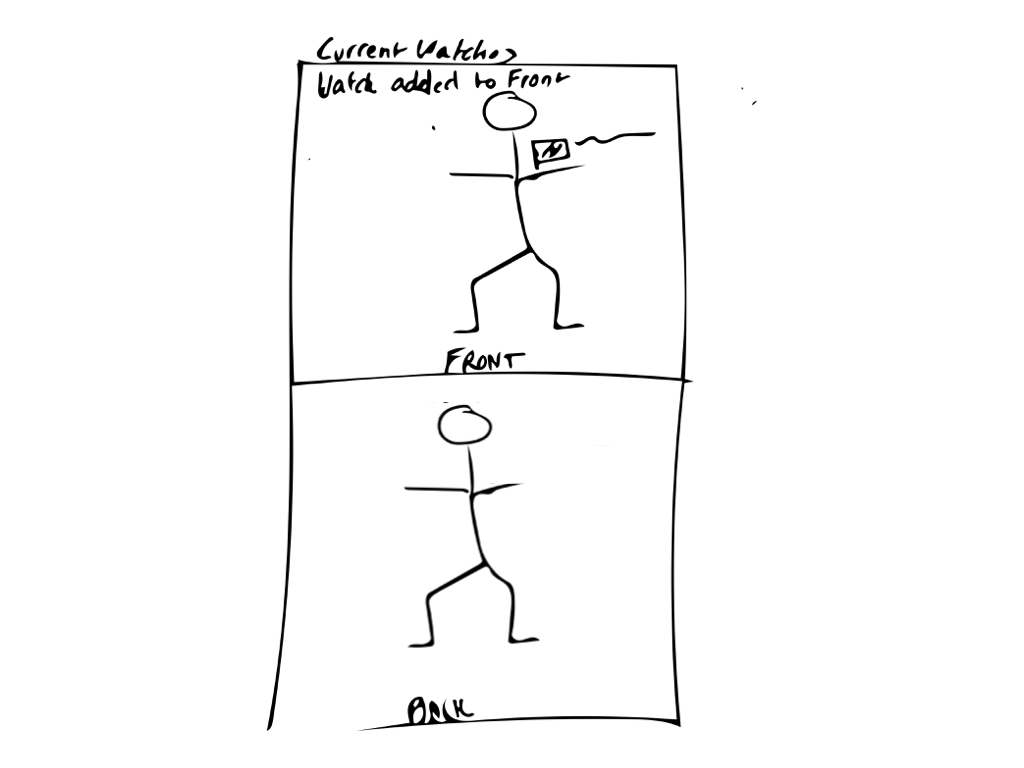 Current Watches
Watch added to Front
FRONT
BACK